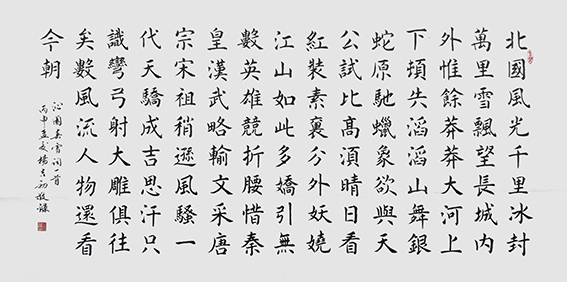 北國風光千里冰封
萬里雪飄望長城內
外惟餘莽莽大河上
下頓失滔滔山舞銀
蛇原馳蠟象欲與天
公試比髙湏晴日看
紅裝素裹分外妖嬈
江山如此多嬌引無
數英雄競折腰惜秦
皇漢武略輸文采唐
宗宋祖稍遜風騷一
代天驕成吉思汗只
識彎弓射大雕俱往
矣數風流人物還看
今朝
沁園春雪詞一首
丙申孟夏楊